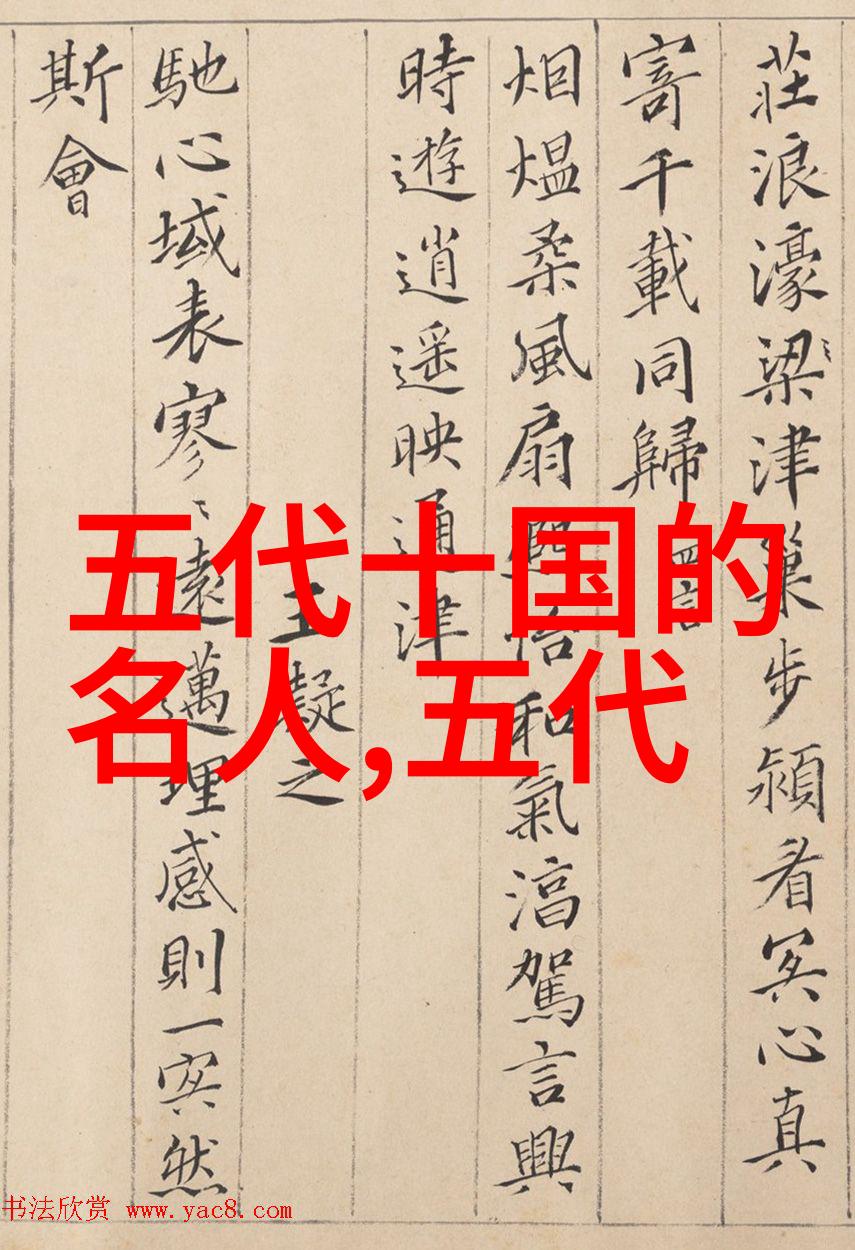 莊浪濠梁津巢步潁看冥心真
寄千載同歸 四言
烟煴柔風扇熙怡和氣湻駕言興
時遊逍遥映通津
王凝之
馳心域表寥〻遠邁理感則一冥然
斯會
五代十国的
名人,五代
书法欣赏 www.yac8.com